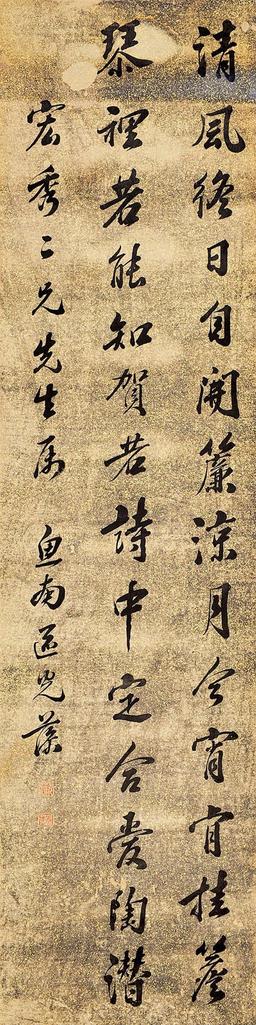 清風終日自開簾涼月今宵肎挂簷
琴裡若能知賀若詩中定合愛陶潛
宏秀二兄先生属